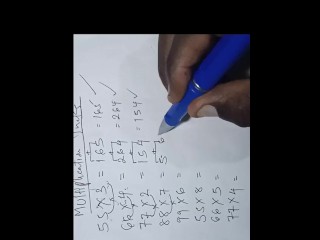 Multiplication Tricks
55 X 3 = 165 = 165 ✓
66 X 4 = 264 = 264 ✓
77 X 2 = 154 = 154 ✓
88 X 7 = 5 6
99 X 6 =
55 X 8 =
66 X 5 =
77 X 4 =